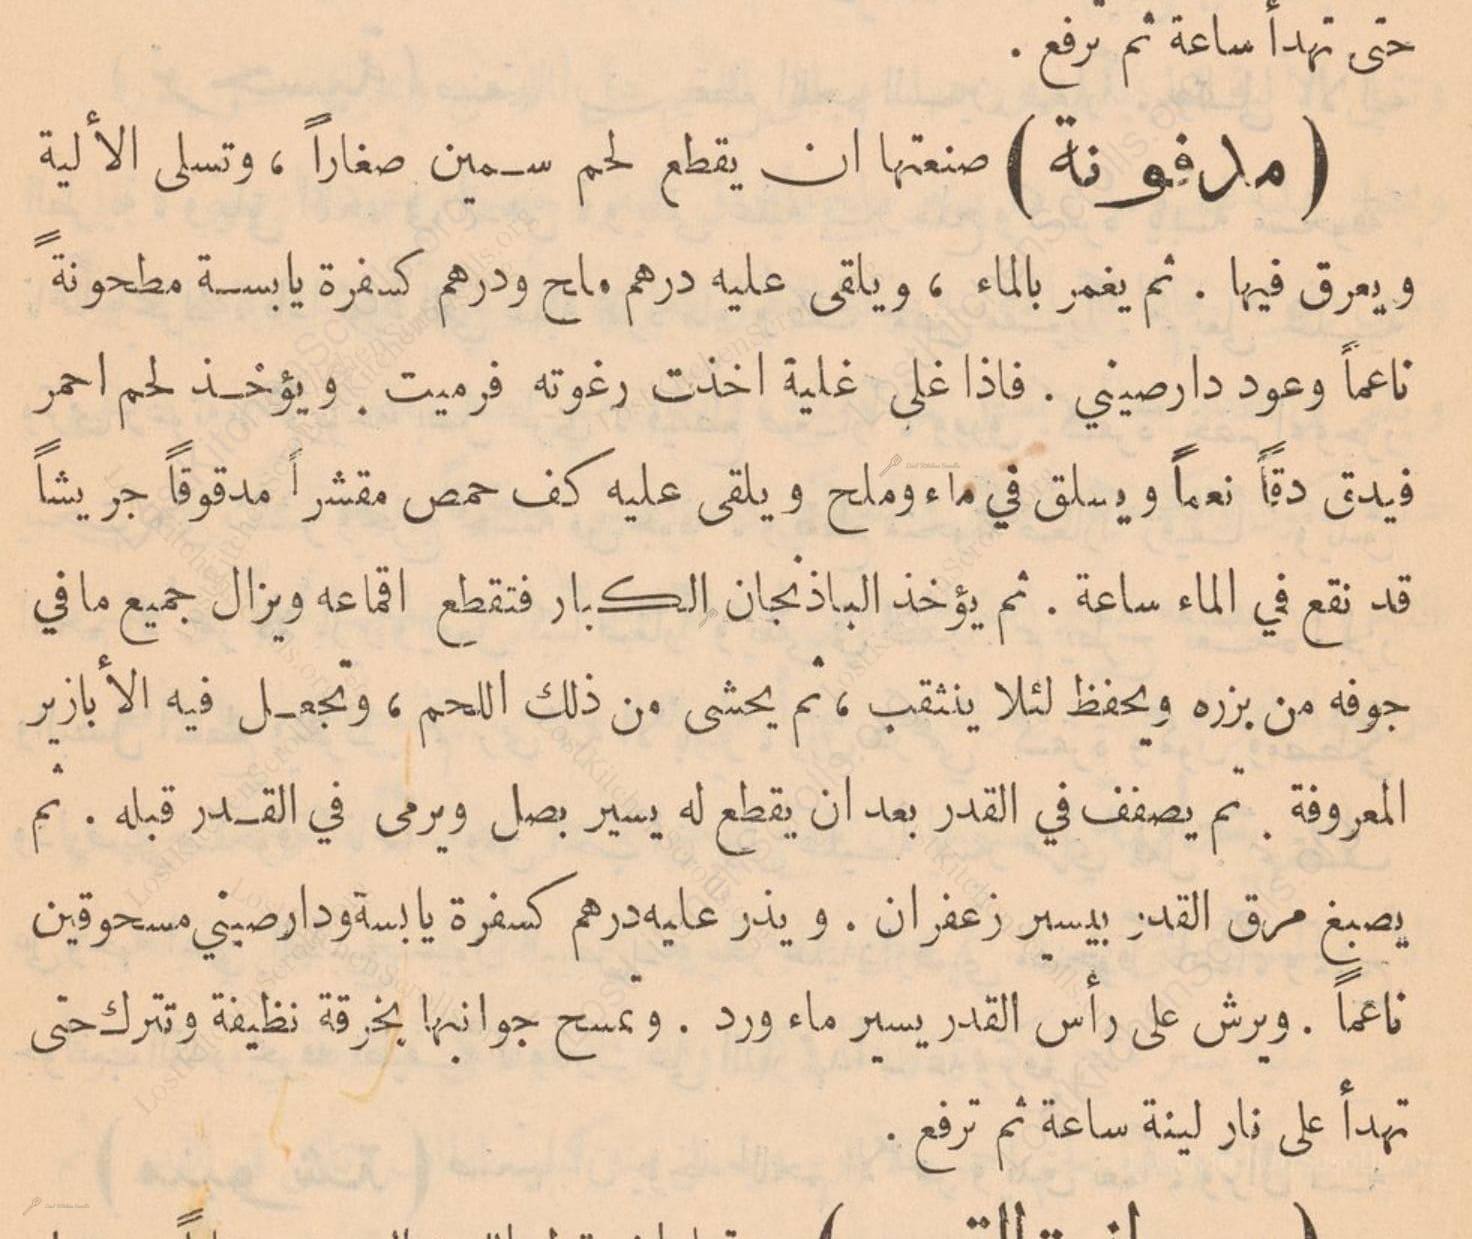 حتى تهدأ ساعة ثم ترفع .
( مدفونة ) صنعتها ان يقطع لحم سمين صغاراً ، وتسلى الألية
ويعرق فيها . ثم يغمر بالماء ، ويلقى عليه درهم ملح ودرهم كسفرة يابسة مطحونةً
ناعماً وعود دارصيني . فاذا غلى غلية اخذت رغوته فرميت . ويؤخذ لحم احمر
فيدق دقاً نعماً ويسلق في ماء وملح ويلقى عليه كف حمص مقشراً مدقوقاً جريشاً
قد نقع في الماء ساعة . ثم يؤخذ الباذنجان الكبار فتقطع اقماعه ويزال جميع ما في
جوفه من بزره ويحفظ لئلا ينثقب ، ثم يحشى من ذلك اللحم ، وتجعل فيه الأبازير
المعروفة . ثم يصفف في القدر بعد ان يقطع له يسير بصل ويرمى في القدر قبله . ثم
يصبغ مرق القدر بيسير زعفران . ويذر عليه درهم كسفرة يابسة ودارصيني مسحوقين
ناعماً . ويرش على رأس القدر يسير ماء ورد . وتمسح جوانبها بخرقة نظيفة وتترك حتى
تهدأ على نار لينة ساعة ثم ترفع .